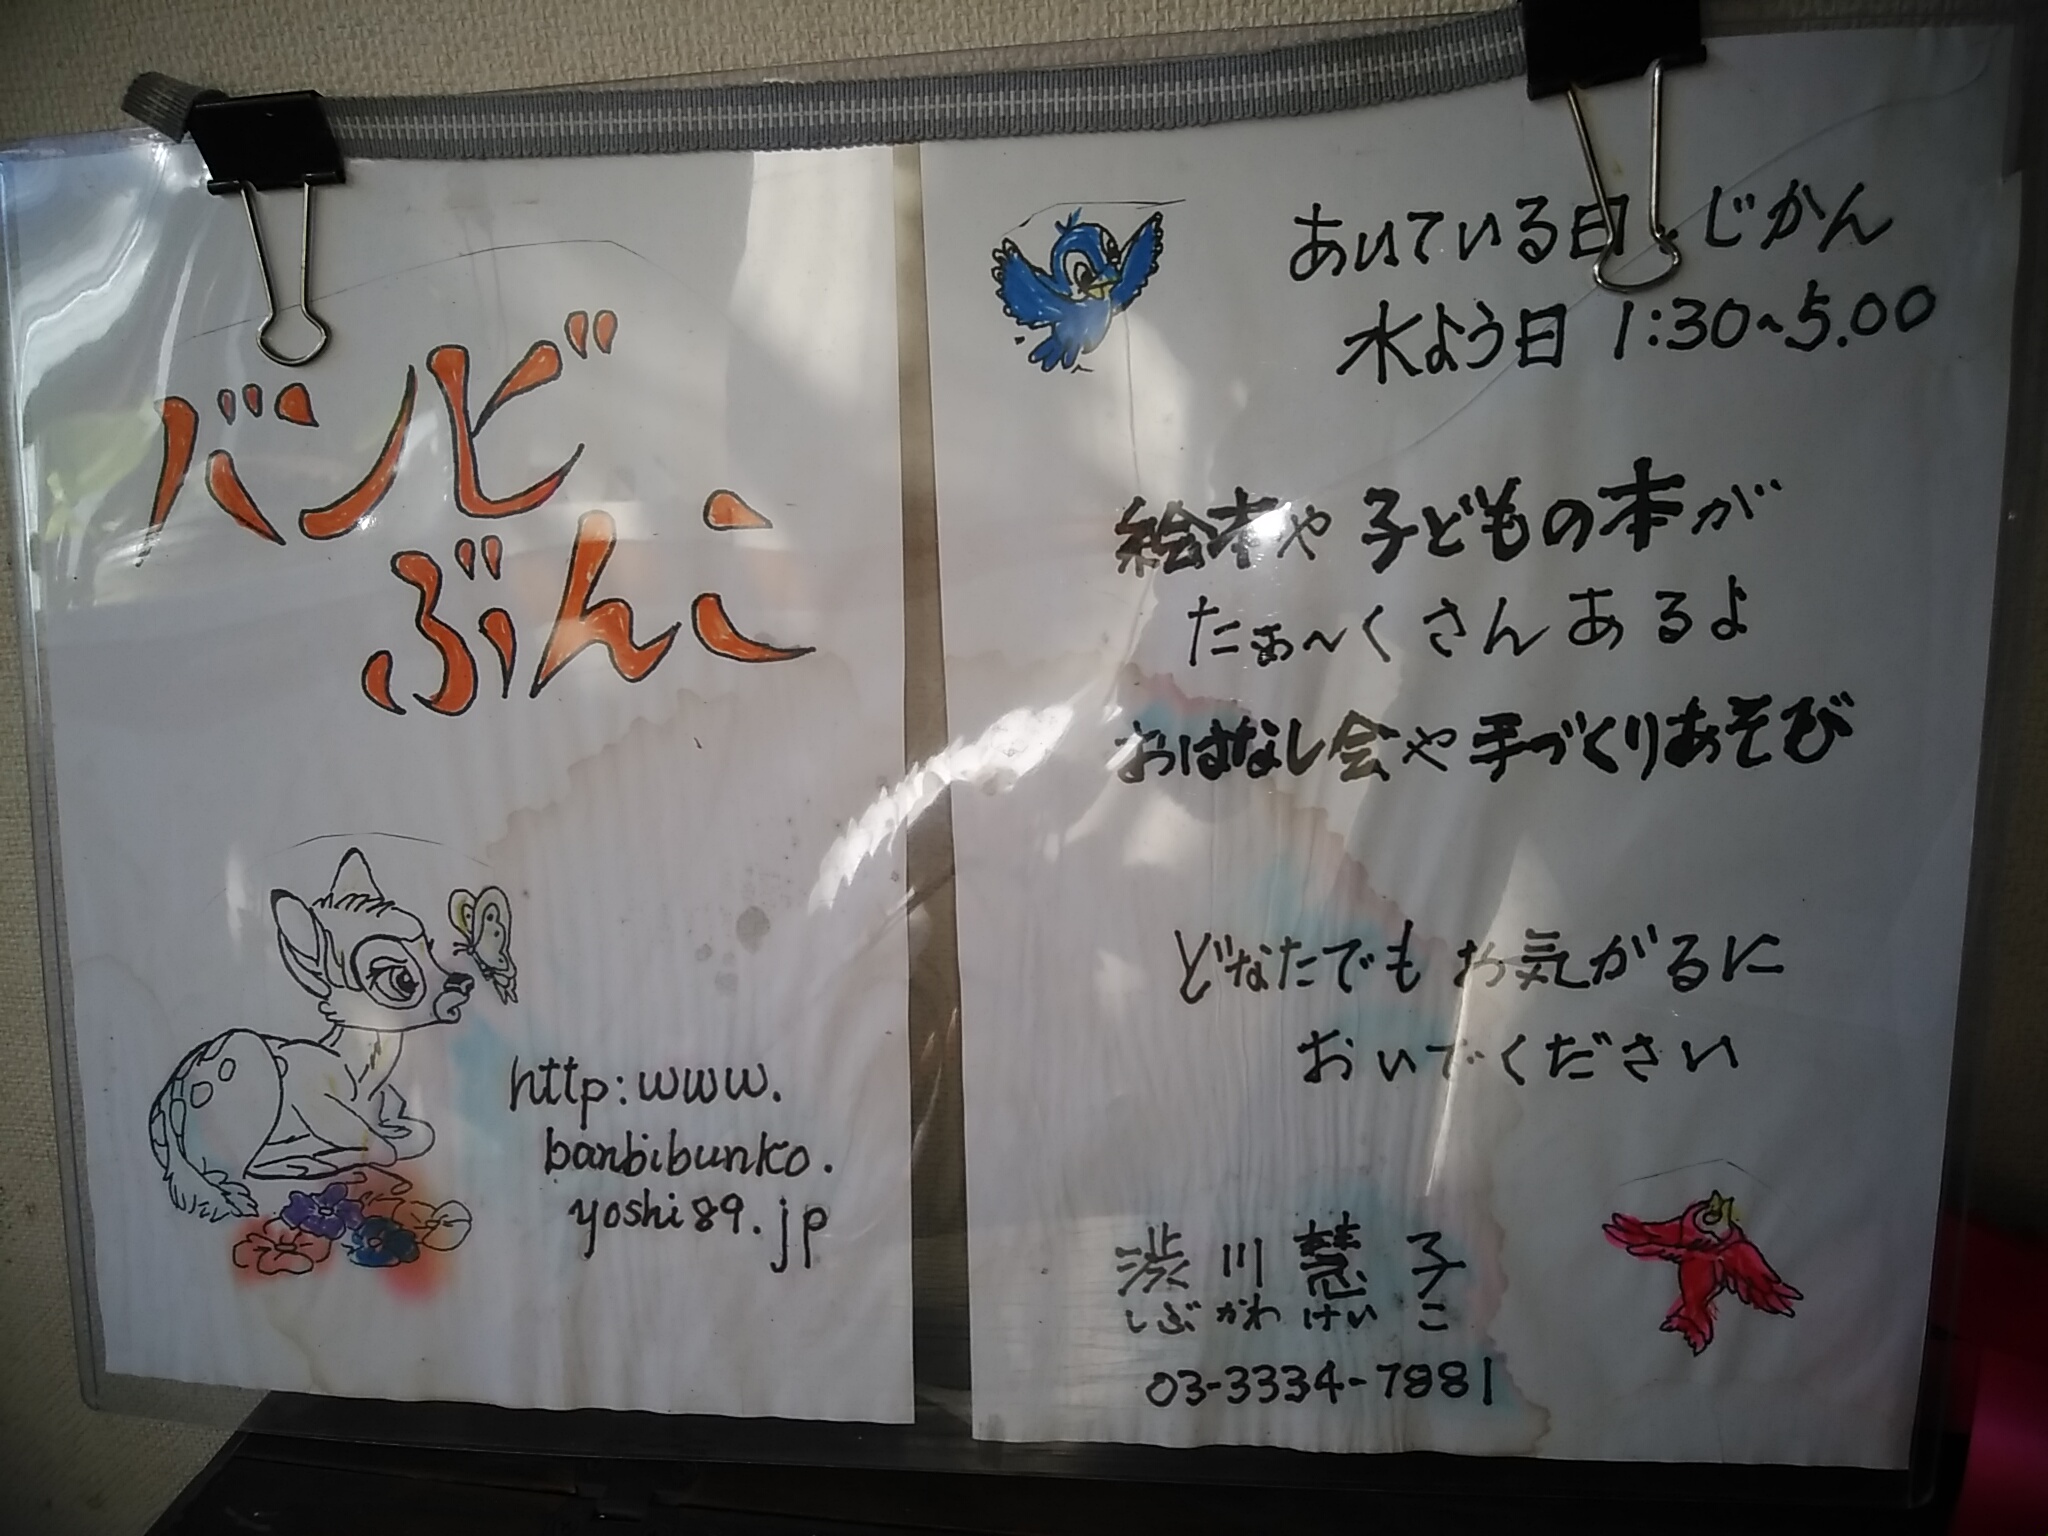 バンビ
ぶんこ
http:www.
banbibunko.
yoshi89.jp
あいている日・じかん
水よう日 1:30~5.00
絵本や子どもの本が
たぁ～くさんあるよ
おはなし会や手づくりあそび
どなたでもお気がるに
おいでください
渋川慧子
しぶかわけいこ
03-3334-7981